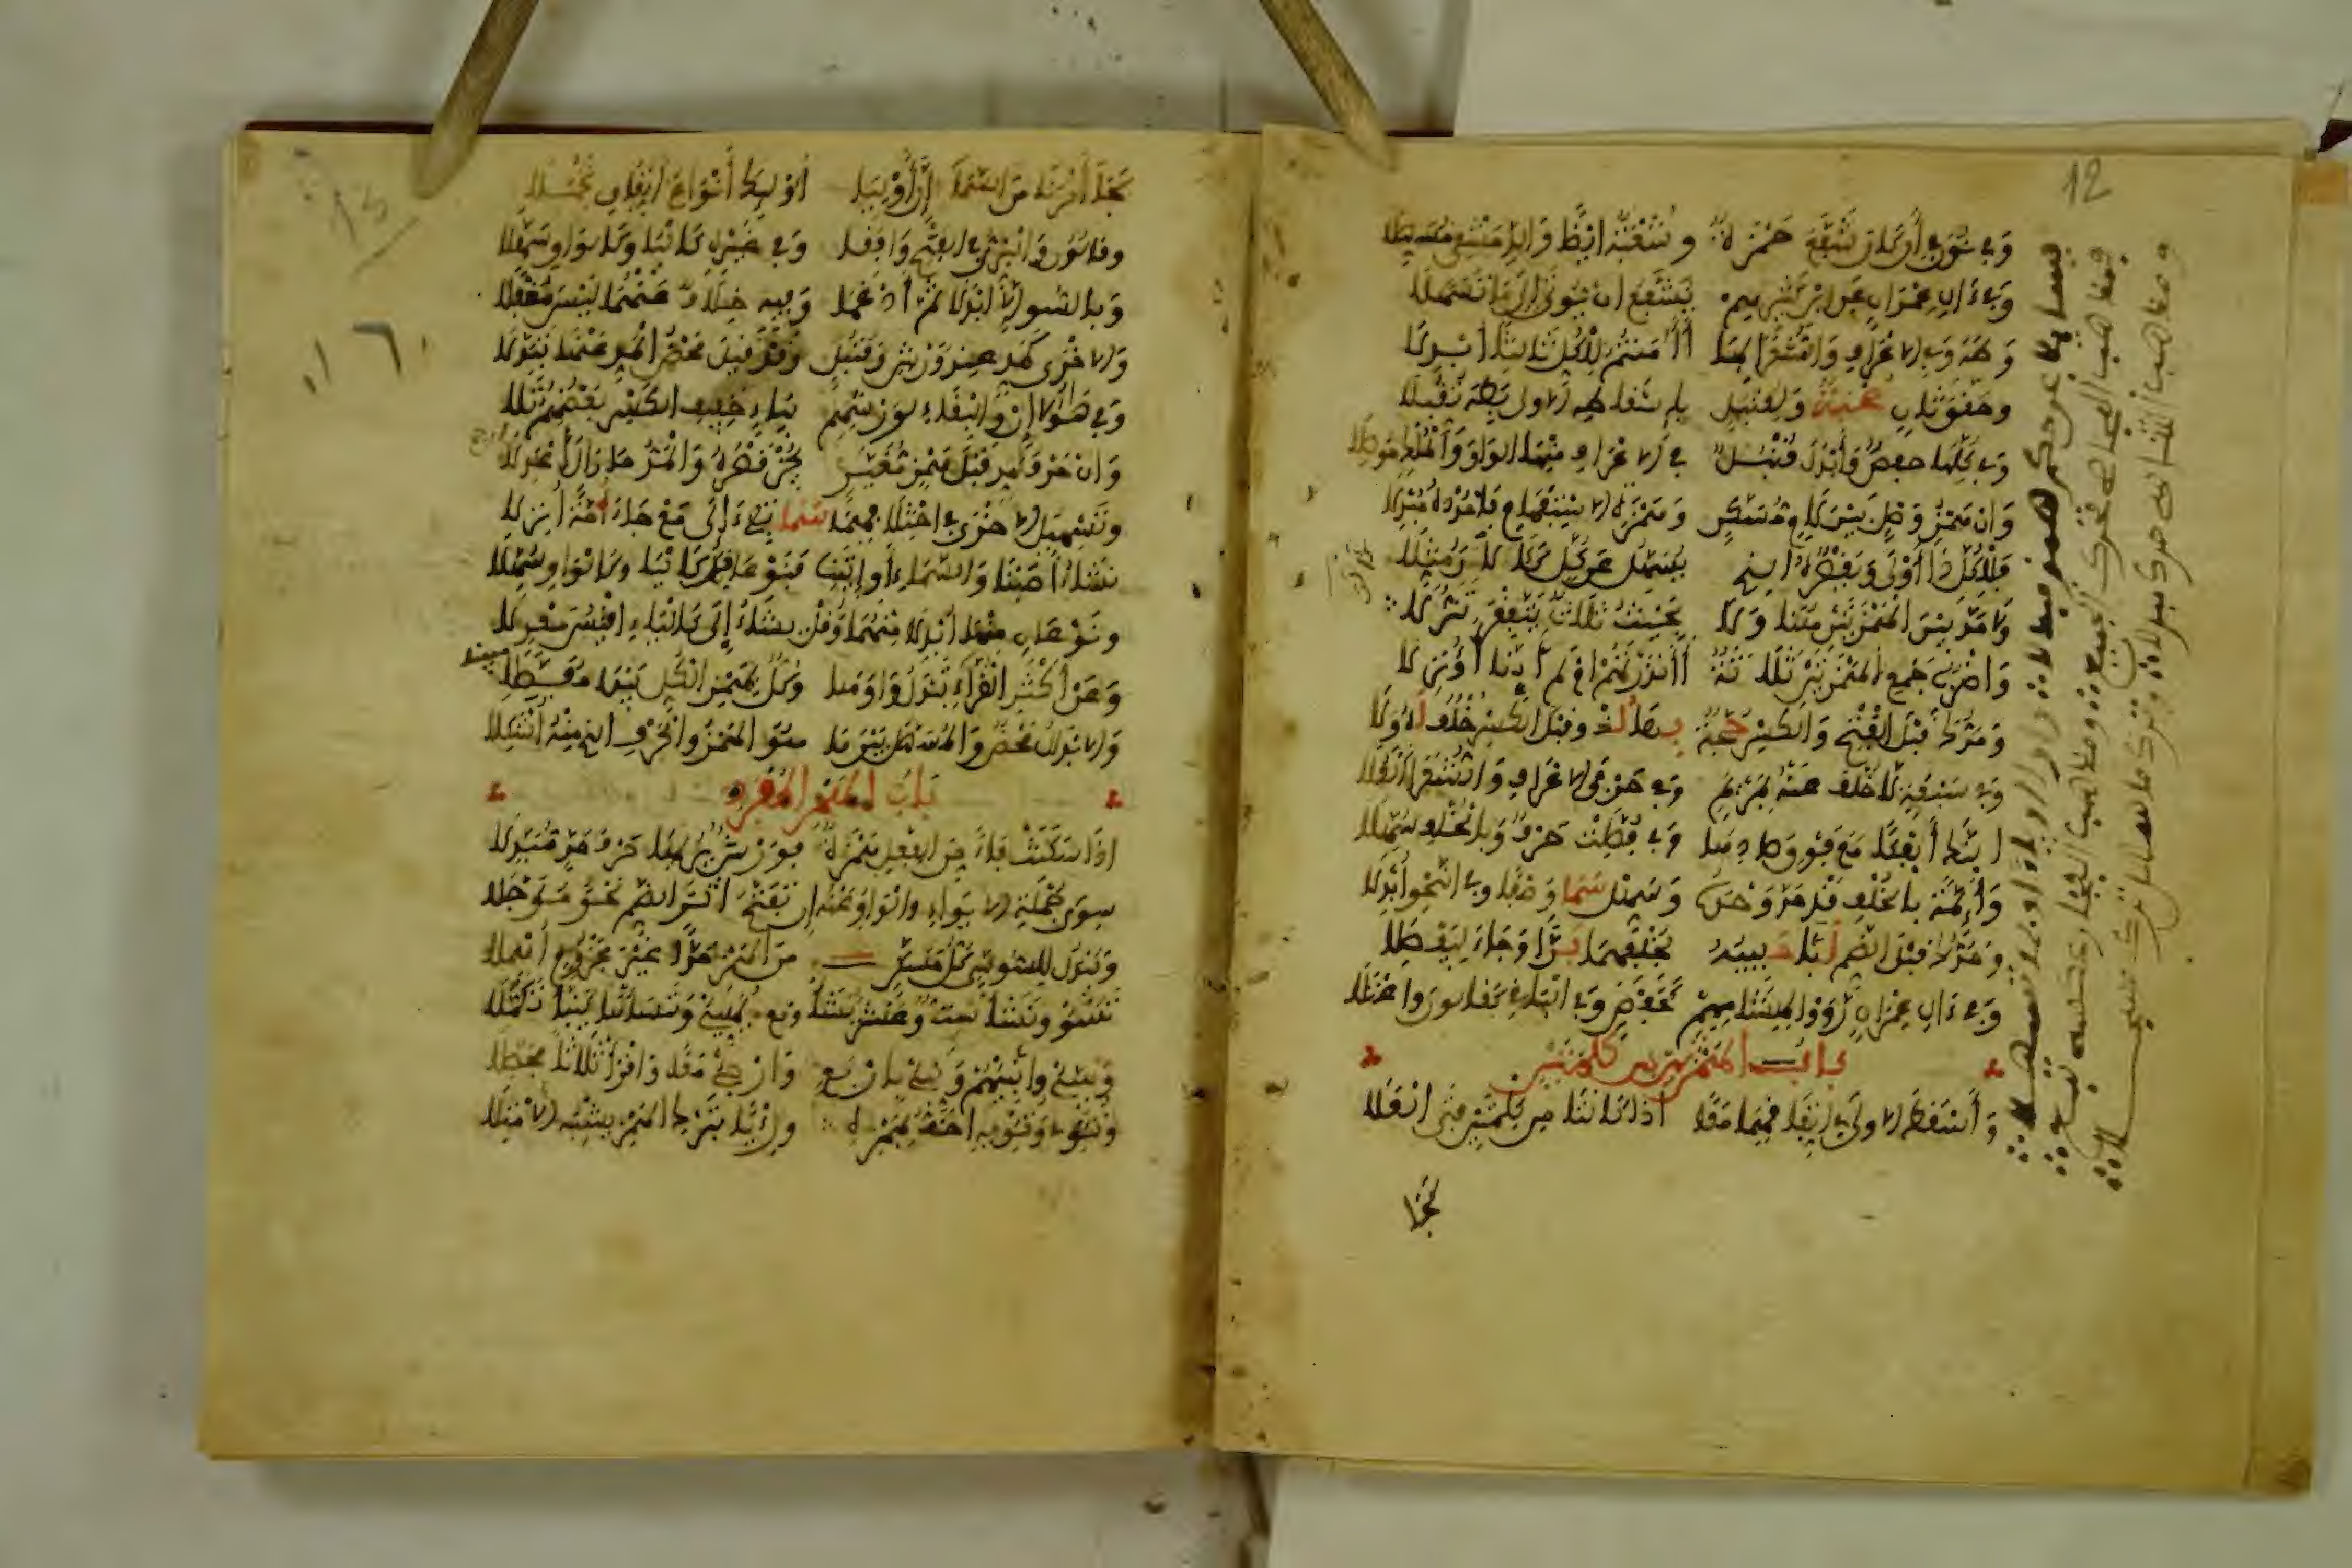 12
وَفِي نُونٍ فِي أَن كَانَ شَفَّعَ حَمْزَةٌ وَشُعْبَةُ أيْضًا وَالدِّمَشْقِي مُسَهِّلَا
وَفِي ءَالِ عِمْرَانٍ عَنِ ابْنِ كَثِيرِهِمْ يُشَفَّعُ أَنْ يُؤْتَى إِلَى مَا تَسَهَّلَا
وَطَهَ وَفِي الأَعْرَافِ وَالشُّعَرَا بِهَا أَآمَنْتُمُ لِلْكُلِّ ثَالِثًا أُبْدِلَا
وَحَقَّقَ ثَانٍ صُحْبَةٌ وَلِقُنْبُلٍ بِإِسْقَاطِهِ الأُولَى بِطَهَ تُقُبِّلَا
وَفِي كُلِّهَا حَفْصٌ وَأَبْدَلَ قُنْبُلٌ فِي الأَعْرَافِ مِنْهَا الوَاوَ وَالمُلْكِ مُوصِلَا
وَإِنْ هَمْزُ وَصْلٍ بَيْنَ لَامٍ وَمُسَكَّنٍ وَهَمْزَةِ الاِسْتِفْهَامِ فَامْدُدْهُ مُبْدِلَا
فَلِلْكُلِّ ذَا أَوْلَى وَيَقْصُرُهُ الذِي يُسَهِّلُ عَنْ كُلٍّ كَآلَانَ مُثِّلَا
وَلَا مَدَّ بَيْنَ الهَمْزَتَيْنِ هُنَا وَلَا بِحَيْثُ ثَلَاثٌ يَتَّفِقْنَ تَنَزُّلَا
وَأَضْرُبُ جَمْعِ الهَمْزَتَيْنِ ثَلَاثَةٌ أَأَنْذَرْتَهُمْ أَمْ لَمْ أَئِنَّا أَؤُنْزِلَا
وَمَدُّكَ قَبْلَ الفَتْحِ وَالكَسْرِ حُجَّةٌ بِهَا لُذْ وَقَبْلَ الكَسْرِ خُلْفٌ لَهُ وَلَا
وَفِي سَبْعَةٍ لَا خُلْفَ عَنْهُ بِمَرْيَمٍ وَفِي حَرْفَيِ الأَعْرَافِ وَالشُّعَرَا العُلَا
أَئِنَّكَ أَئِفْكًا مَعًا فَوْقَ صَادِهَا وَفِي فُصِّلَتْ حَرْفٌ وَبِالخُلْفِ سُهِّلَا
وَأَئِمَّةً بِالخُلْفِ قَدْ مَدَّ وَحْدَهُ وَسَهِّلْ سَمَا وَصْفًا وَفِي النَّحْوِ أُبْدِلَا
وَمَدُّكَ قَبْلَ الضَّمِّ لَبَّى حَبِيبُهُ بِخُلْفِهِمَا بَرًّا وَجَاءَ لِيَفْصِلَا
وَفِي ءَالِ عِمْرَانٍ رَوَوْا لِهِشَامِهِمْ كَحَفْصٍ وَفِي البَاقِي كَقَالُونَ وَاعْتَلَا
بَابُ الهَمْزَتَيْنِ مِن كَلِمَتَيْنِ
وَأَسْقَطَ الأُولَى فِي اتِّفَاقِهِمَا مَعًا إِذَا كَانَتَا مِن كِلْمَتَيْنِ فَتَى العُلَا
كَجَا
13
كَجَا أَمْرُنَا مِنَ السَّمَا إِنَّ أَوْلِيَا أُوْلَئِكَ أَنْوَاعُ اتِّفَاقٍ تَجَمَّلَا
وَقَالُونُ وَالبَزِّيُّ فِي الفَتْحِ وَافَقَا وَفِي غَيْرِهِ كَاليَا وَكَالوَاوِ سَهَّلَا
وَبِالسُّوءِ إِلَّا أَبْدَلَا ثُمَّ أَدْغَمَا وَفِيهِ خِلَافٌ عَنْهُمَا لَيْسَ مُقْفَلَا
وَالأُخْرَى كَمَدٍّ عِنْدَ وَرْشٍ وَقُنْبُلٍ وَقَدْ قِيلَ مَحْضُ المَدِّ عَنْهَا تَبَدَّلَا
وَفِي هَؤُلَا إِنْ وَالبِغَاءِ لِوَرْشِهِمْ بِيَاءٍ خَفِيفِ الكَسْرِ بَعْضُهُمُ تَلَا
وَإِنْ حَرْفُ مَدٍّ قَبْلَ هَمْزٍ مُغَيَّرٍ يَجُزْ قَصْرُهُ وَالمَدُّ مَا زَالَ أَعْدَلَا
وَتَسْهِيلُ الأُخْرَى فِي اخْتِلَافِهِمَا سَمَا تَفِيءَ إِلَى مَعْ جَاءَ أُمَّةً أُنْزِلَا
نَشَاءُ أَصَبْنَا وَالسَّمَاءِ أَوِ ائْتِنَا فَنَوْعَانِ قُلْ كَاليَا وَكَالوَاوِ سُهِّلَا
وَنَوْعَانِ مِنْهَا أُبْدِلَا مِنْهُمَا وَقُلْ يَشَاءُ إِلَى كَاليَاءِ أَقْيَسُ مَعْدِلَا
وَعَنْ أَكْثَرِ القُرَّاءِ تُبْدَلُ وَاوُهَا وَكُلٌّ بِهَمْزِ الكُلِّ يَبْدَا مُفَصِّلَا
وَالإِبْدَالُ مَحْضٌ وَالمُسَهَّلُ بَيْنَ مَا هُوَ الهَمْزُ وَالحَرْفُ الذِي مِنْهُ أُشْكِلَا
بَابُ الهَمْزِ المُفْرَدِ
إِذَا سَكَنَتْ فَاءً مِنَ الفِعْلِ هَمْزَةٌ فَوَرْشٌ يُرِيهَا حَرْفَ مَدٍّ مُبَدِّلَا
سِوَى جُمْلَةِ الإِيوَاءِ وَالوَاوُ عَنْهُ إِنْ تَفَتَّحَ إِثْرَ الضَّمِّ نَحْوُ مُؤَجَّلَا
وَيُبْدَلُ لِلسُّوسِيِّ كُلُّ مُسَكَّنٍ مِنَ الهَمْزِ مَدًّا غَيْرَ مَجْزُومٍ أُهْمِلَا
تَسُؤْ وَنَشَا سِتٌّ وَعَشْرٌ يَشَا وَمَعْ يُهَيِّئْ وَنَنْسَأْهَا يُنَبَّأْ تَكَمَّلَا
وَهَيِّئْ وَأَنْبِئْهُمْ وَنَبِّئْ بِأَرْبَعٍ وَأَرْجِئْ مَعًا وَاقْرَأْ ثَلَاثًا فَحَصِّلَا
وَتُؤْوِي وَتُؤْوِيهِ أَخَفُّ بِهَمْزِهِ وَرِئْيًا بِتَرْكِ الهَمْزِ يُشْبِهُ الاِمْتِلَا